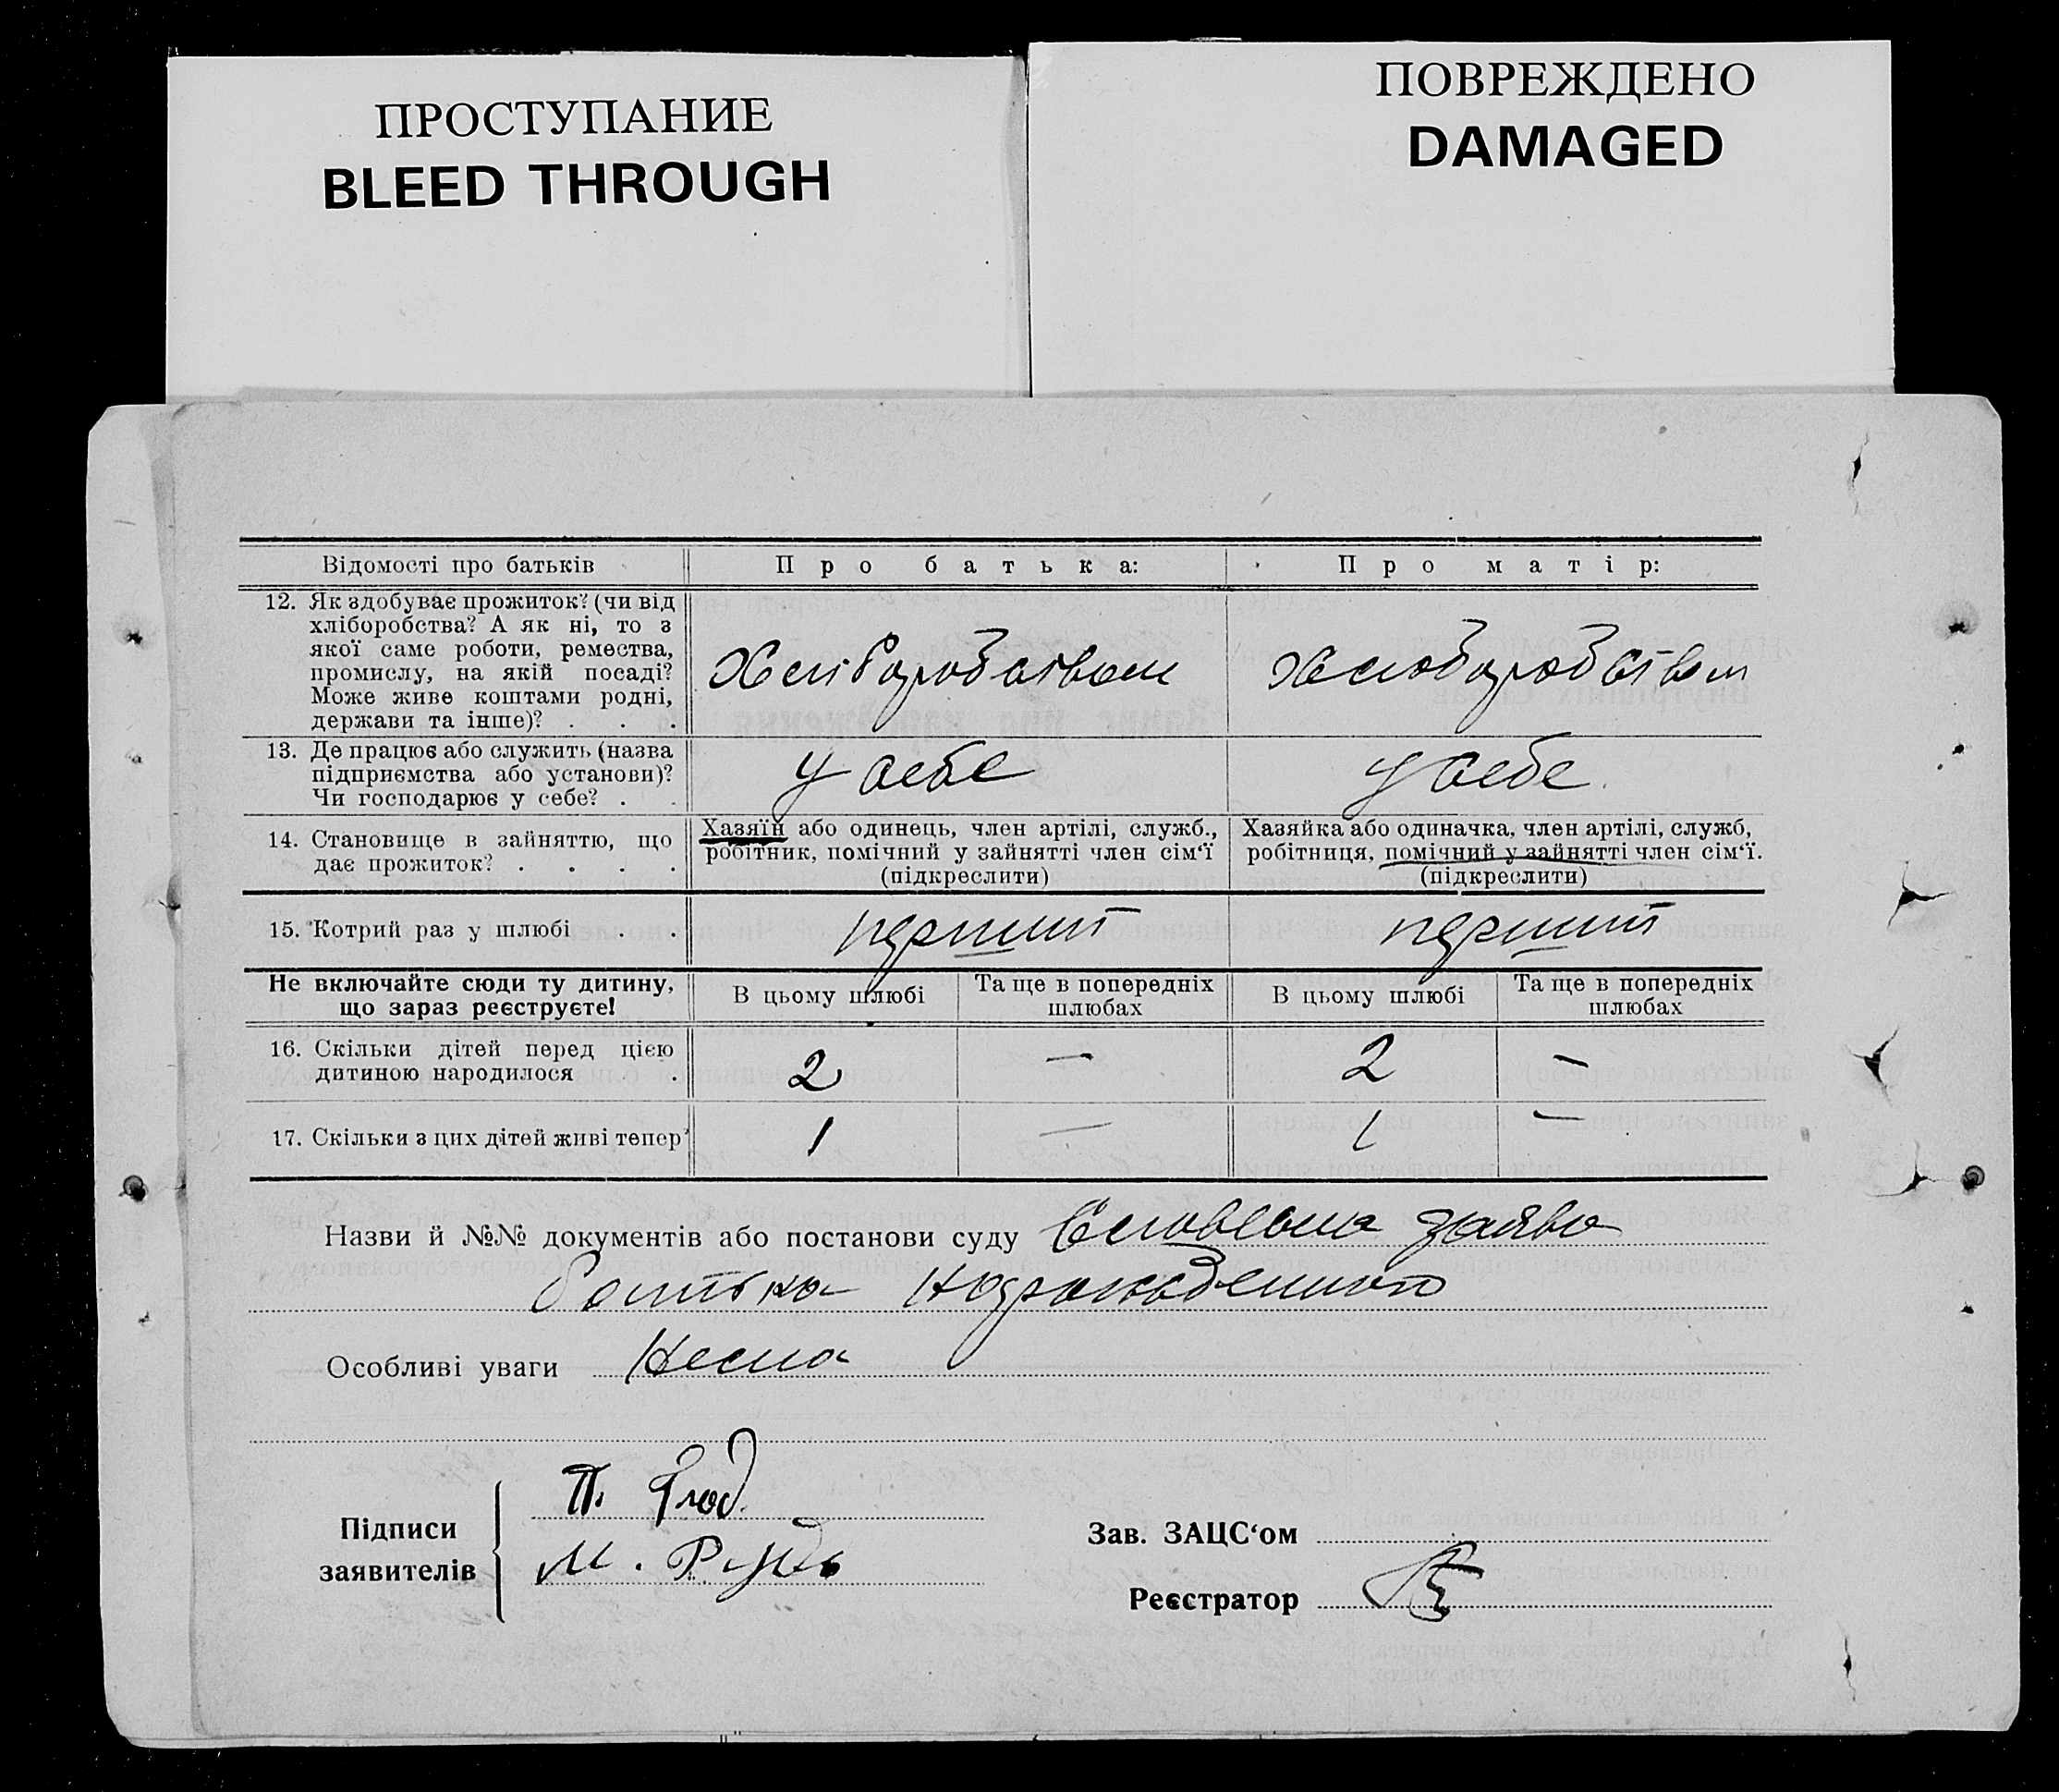 ПРОСТУПАНИЕ
BLEED THROUGH
ПОВРЕЖДЕНО
DAMAGED
Відомості про батьків
Про батька:
Про матір:
12. Як здобуває прожиток? (чи від
хліборобства? А як ні, то з
якої саме роботи, ремества,
промислу, на якій посаді?
Може живе коштами родні,
держави та інше)? . . .
Хліборобством
хлиборобством
13. Де працює або служить (назва
підприємства або установи)?
Чи господарює у себе? . .
у себе
у себе
14. Становище в зайняттю, що
дає прожиток? . . . .
Хазяїн або одинець, член артілі, служб.,
робітник, помічний у зайнятті член сім‘ї
(підкреслити)
Хазяйка або одиначка, член артілі, служб,
робітниця, помічний у зайнятті член сім‘ї.
(підкреслити)
15. Котрий раз у шлюбі . .
перший
перший
Не включайте сюди ту дитину,
що зараз реєструєте!
В цьому шлюбі
Та ще в попередніх
шлюбах
В цьому шлюбі
Та ще в попередніх
шлюбах
16. Скільки дітей перед цією
дитиною народилося .
2
—
2
—
17. Скільки з цих дітей живі тепер?
1
—
1
—
Назви й №№ документів або постанови суду Словесна заява
батька
Особливі уваги Нема
Підписи
заявителів
П.
М. Рудь
Зав. ЗАЦС‘ом
Реєстратор